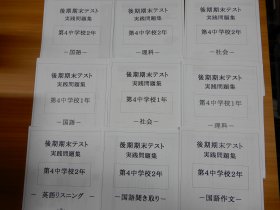 後期期末テスト
実践問題集
第4中学校2年
－国語－
後期期末テスト
実践問題集
第4中学校2年
－理科－
後期期末テスト
実践問題集
第4中学校2年
－社会－
後期期末テスト
実践問題集
第4中学校1年
－国語－
後期期末テスト
実践問題集
第4中学校1年
－社会－
後期期末テスト
実践問題集
第4中学校1年
－理科－
後期期末テスト
実践問題集
第4中学校2年
－ 英語リスニング －
後期期末テスト
実践問題集
第4中学校2年
－国語聞き取り－
後期期末テスト
実践問題集
第4中学校2年
－国語作文－